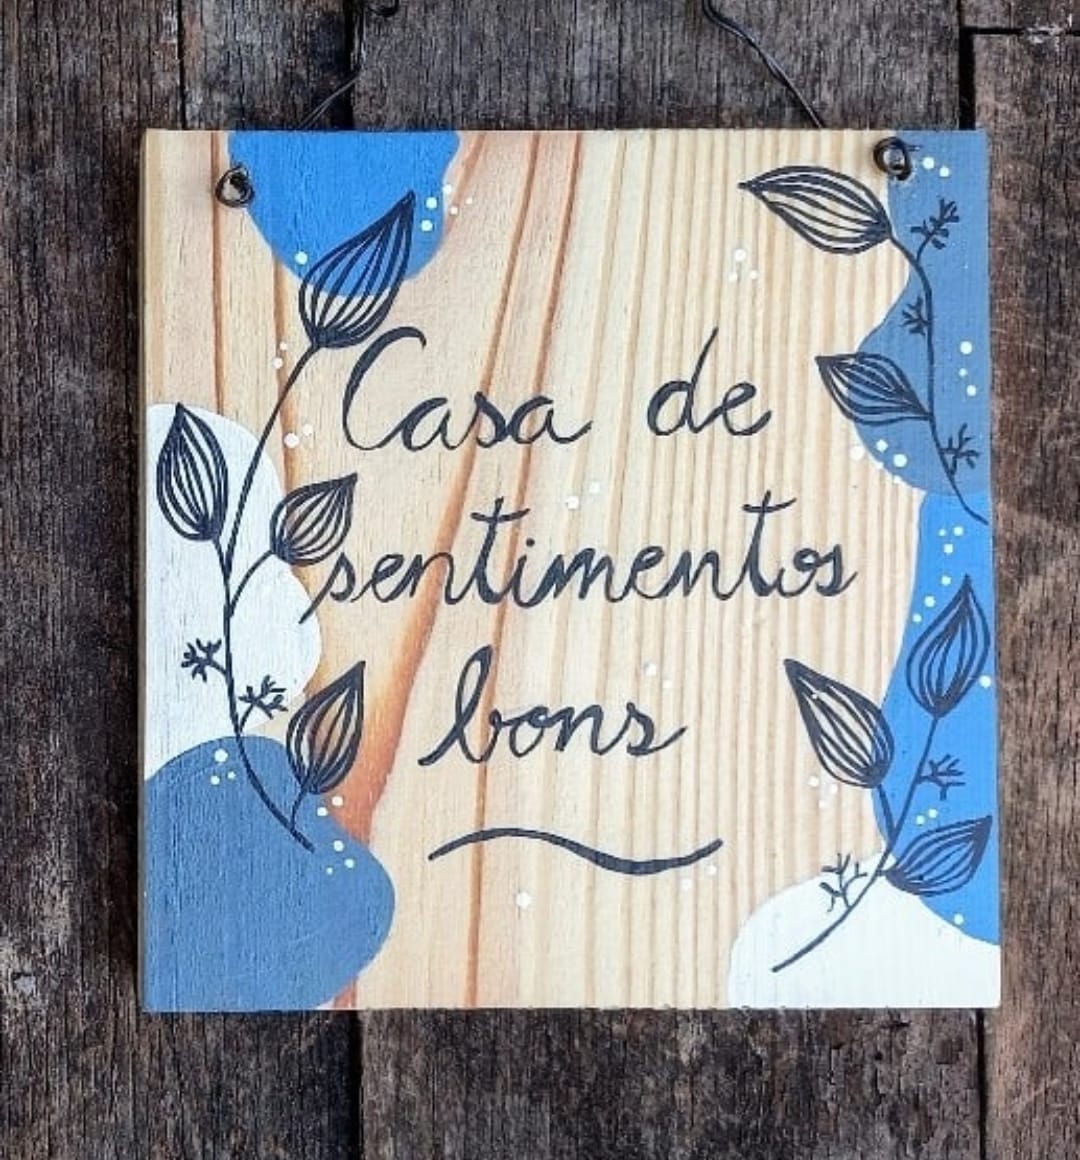 Casa de
sentimentos
bons